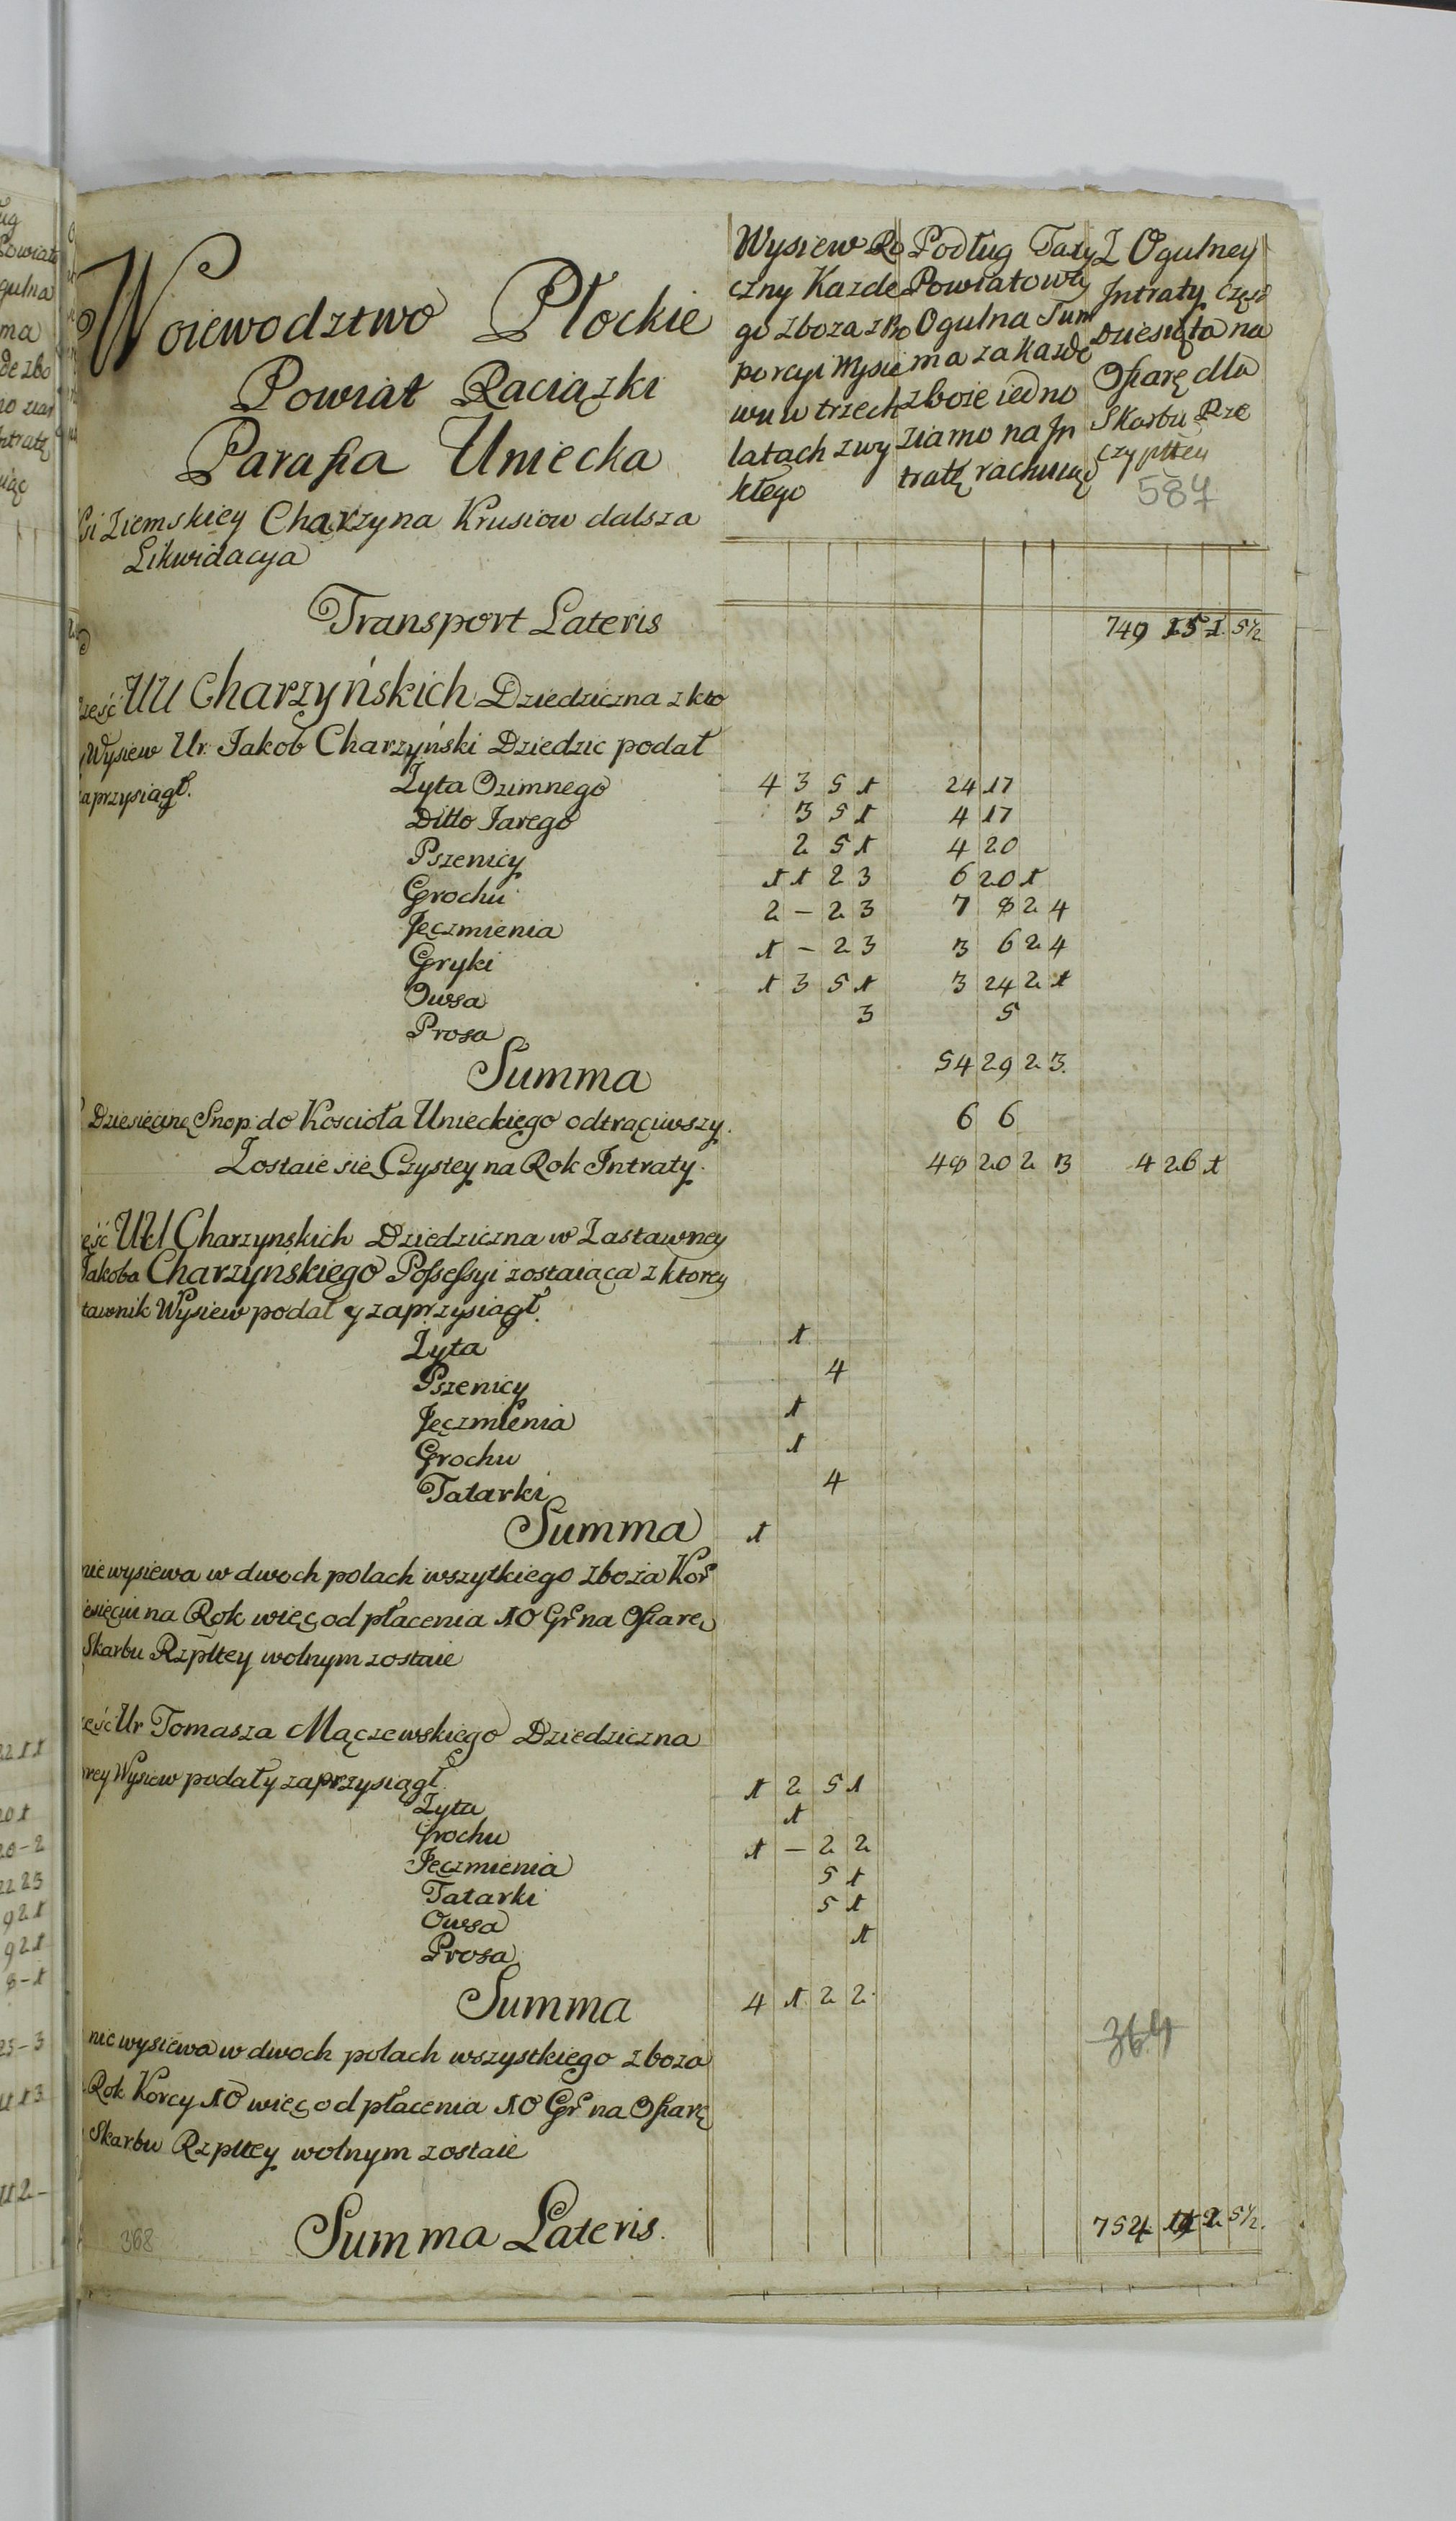 Woiewodztwo Płockie
Powiat Raciązki
Parafia Uniecka
Wysiew Ro
czny Kazde
go zboza z Pro
porcyi Wysie
wu w trzech
latach zwy
kłego
Podług Taxy
Powiatowey
Ogulna Sum
ma za Kazde
zboze iedno
ziarno na In
tratę rachuiąc
Z Ogulney
Intraty Częsc
Dziesiąta na
Ofiarę dla
Skarbu Rze
czyptey
587
si Ziemskiey Charzyna Krusiow dalsza
Likwidacya
Transport Lateris 749 15 1 5½
zęść UU Charzyńskich Dziedziczna z kto
Wysiew Ur. Jakob Charzyński Dziedzic podał
zaprzysiągł.
Zyta Ozimnego 4 3 5 1 24 17
Ditto Jarego 3 5 1 4 17
Pszenicy 2 5 1 4 20
Grochu 1 1 2 3 6 20 1
Jęczmienia 2 – 2 3 7 8 2 4
Gryki 1 – 2 3 3 6 2 4
Owsa 1 3 5 1 3 24 2 1
Prosa 3 5
Summa 54 29 2 3.
Dziesięcinę Snop: do Kościoła Unieckiego odtrąciwszy. 6 6
Zostaie się Czystey na Rok Intraty. 48 20 2 3 4 26 1
ęść UU Charzynskich Dziedziczna w Zastawney
Jakoba Charzyńskiego Possessyi zostaiąca z ktorey
tawnik Wysiew podał y zaprzysiągł.
Zyta 1
Pszenicy 4
Jęczmienia 1
Grochu 1
Tatarki 4
Summa 1
nie wysiewa w dwoch polach wszytkiego zboza Kor
iesięciu na Rok więc od płacenia 10 Gr na Ofiarę
Skarbu Rzpltey wolnym zostaie
ęść Ur Tomasza Mączewskiego Dziedziczna
rey Wysiew podał y zaprzysiągł.
Zyta 1 2 5 1
Grochu 1
Jęczmienia 1 – 2 2
Tatarki 5 1
Owsa 5 1
Prosa 1
Summa 4 1 2 2.
nie wysiewa w dwoch polach wszystkiego zboza
Rok Korcy 10 więc od płacenia 10 Gr na Ofiarę
Skarbu Rzpltey wolnym zostaie
Summa Lateris. 754 2 5½.
368